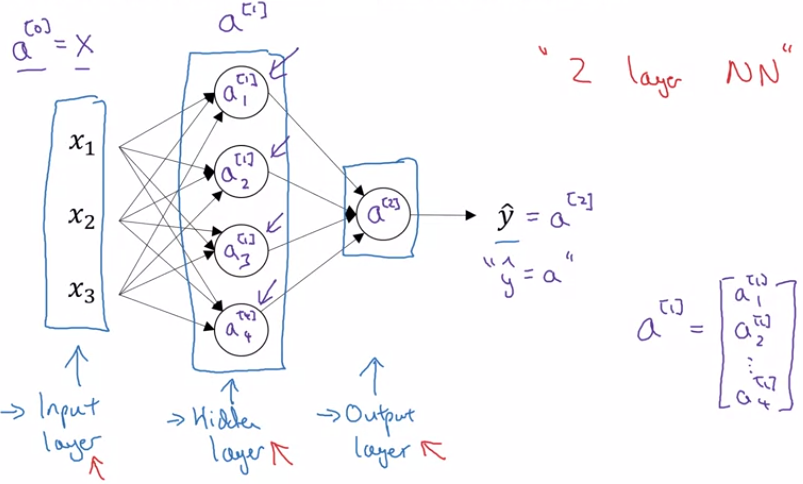 a^[0] = X
a^[1]
"2 layer NN"
x₁
x₂
x₃
a₁^[1]
a₂^[1]
a₃^[1]
a₄^[1]
a^[2]
ŷ = a^[2]
"ŷ = a"
a^[1] = [a₁^[1]
a₂^[1]
⋮
a₄^[1]]
→ Input
layer
→ Hidden
layer
→ Output
layer